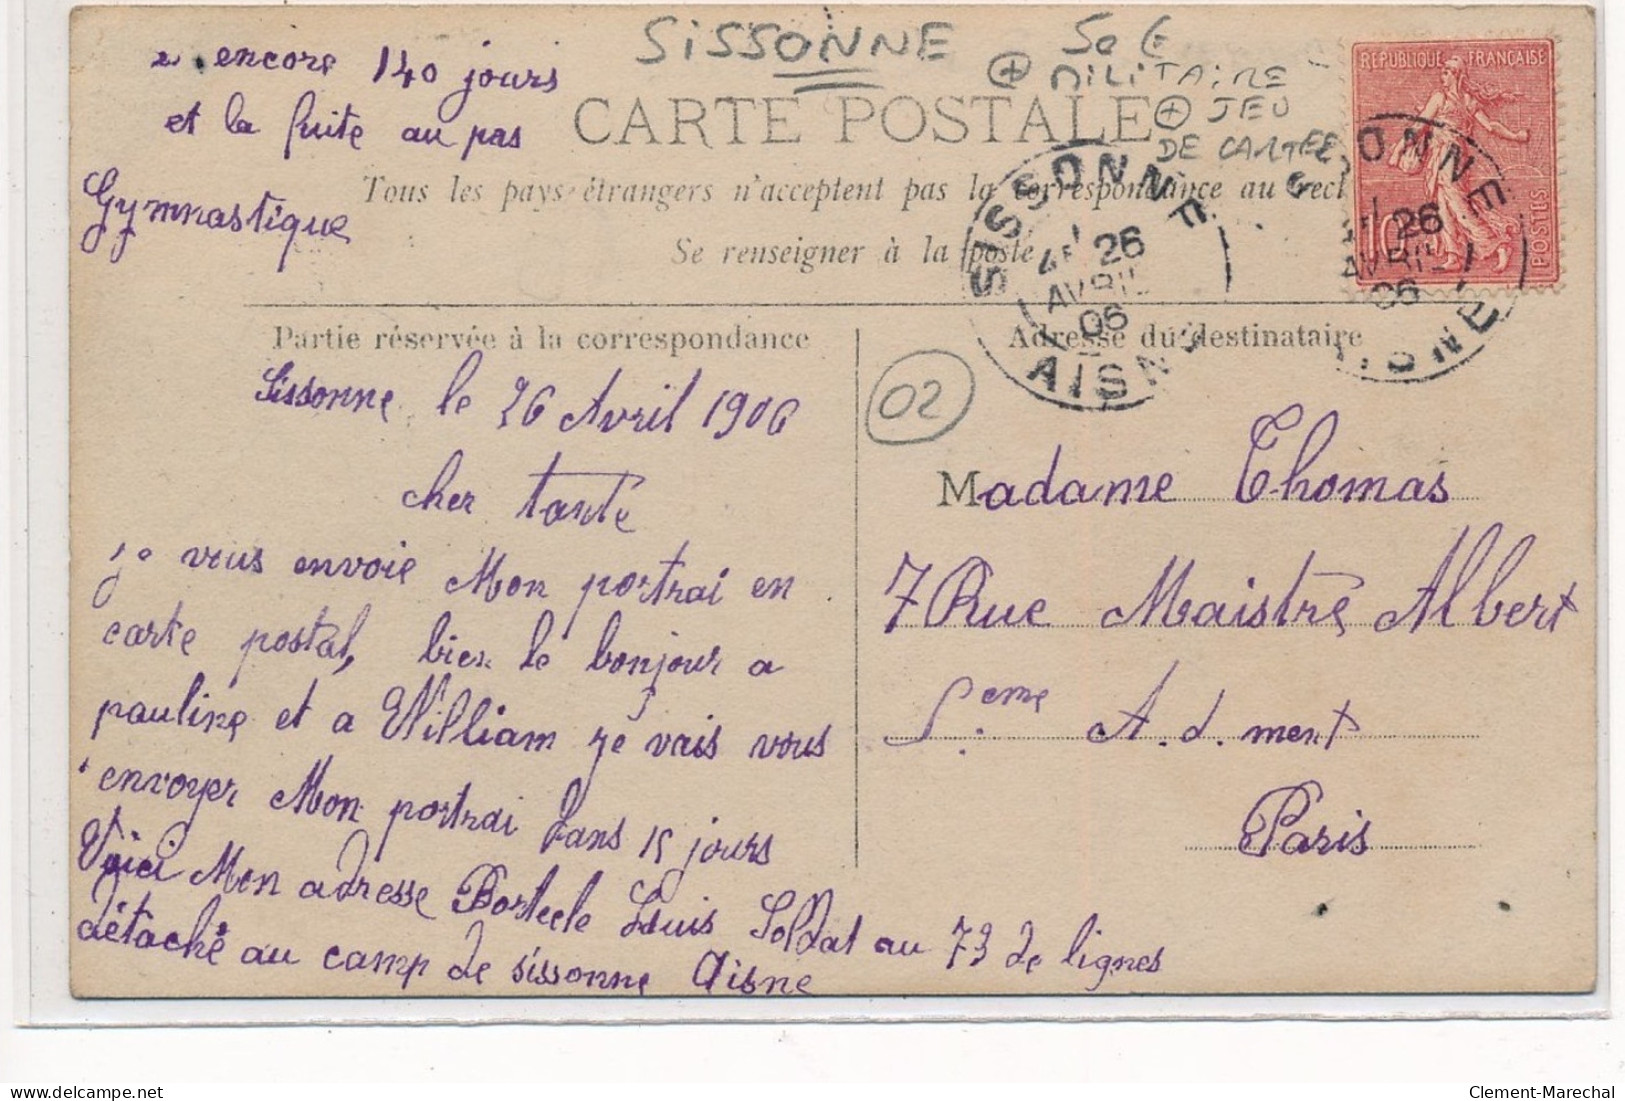 encore 140 jours
et la fuite au pas
Gymnastique
SISSONNE
MILITAIRE
+ JEU
DE CARTES
CARTE POSTALE
Tous les pays étrangers n'acceptent pas la correspondance au rect
Se renseigner à la poste
RÉPUBLIQUE FRANÇAISE
POSTES
10
SISSONNE
26
AVRIL
06
AISNE
SISSONNE
26
AVRIL
06
AISNE
Partie réservée à la correspondance
Adresse du destinataire
02
Sissonne le 26 Avril 1906
cher tante
je vous envoie Mon portrai en
carte postal, bien le bonjour a
pauline et a William je vais vous
envoyer Mon portrai dans 15 jours
Voici Mon adresse Louis Soldat au 73 de lignes
détaché au camp de sissonne Aisne
Madame Thomas
7 Rue Maistre Albert
5eme A.d.ment
Paris
delcampe.net
Clement-Marechal